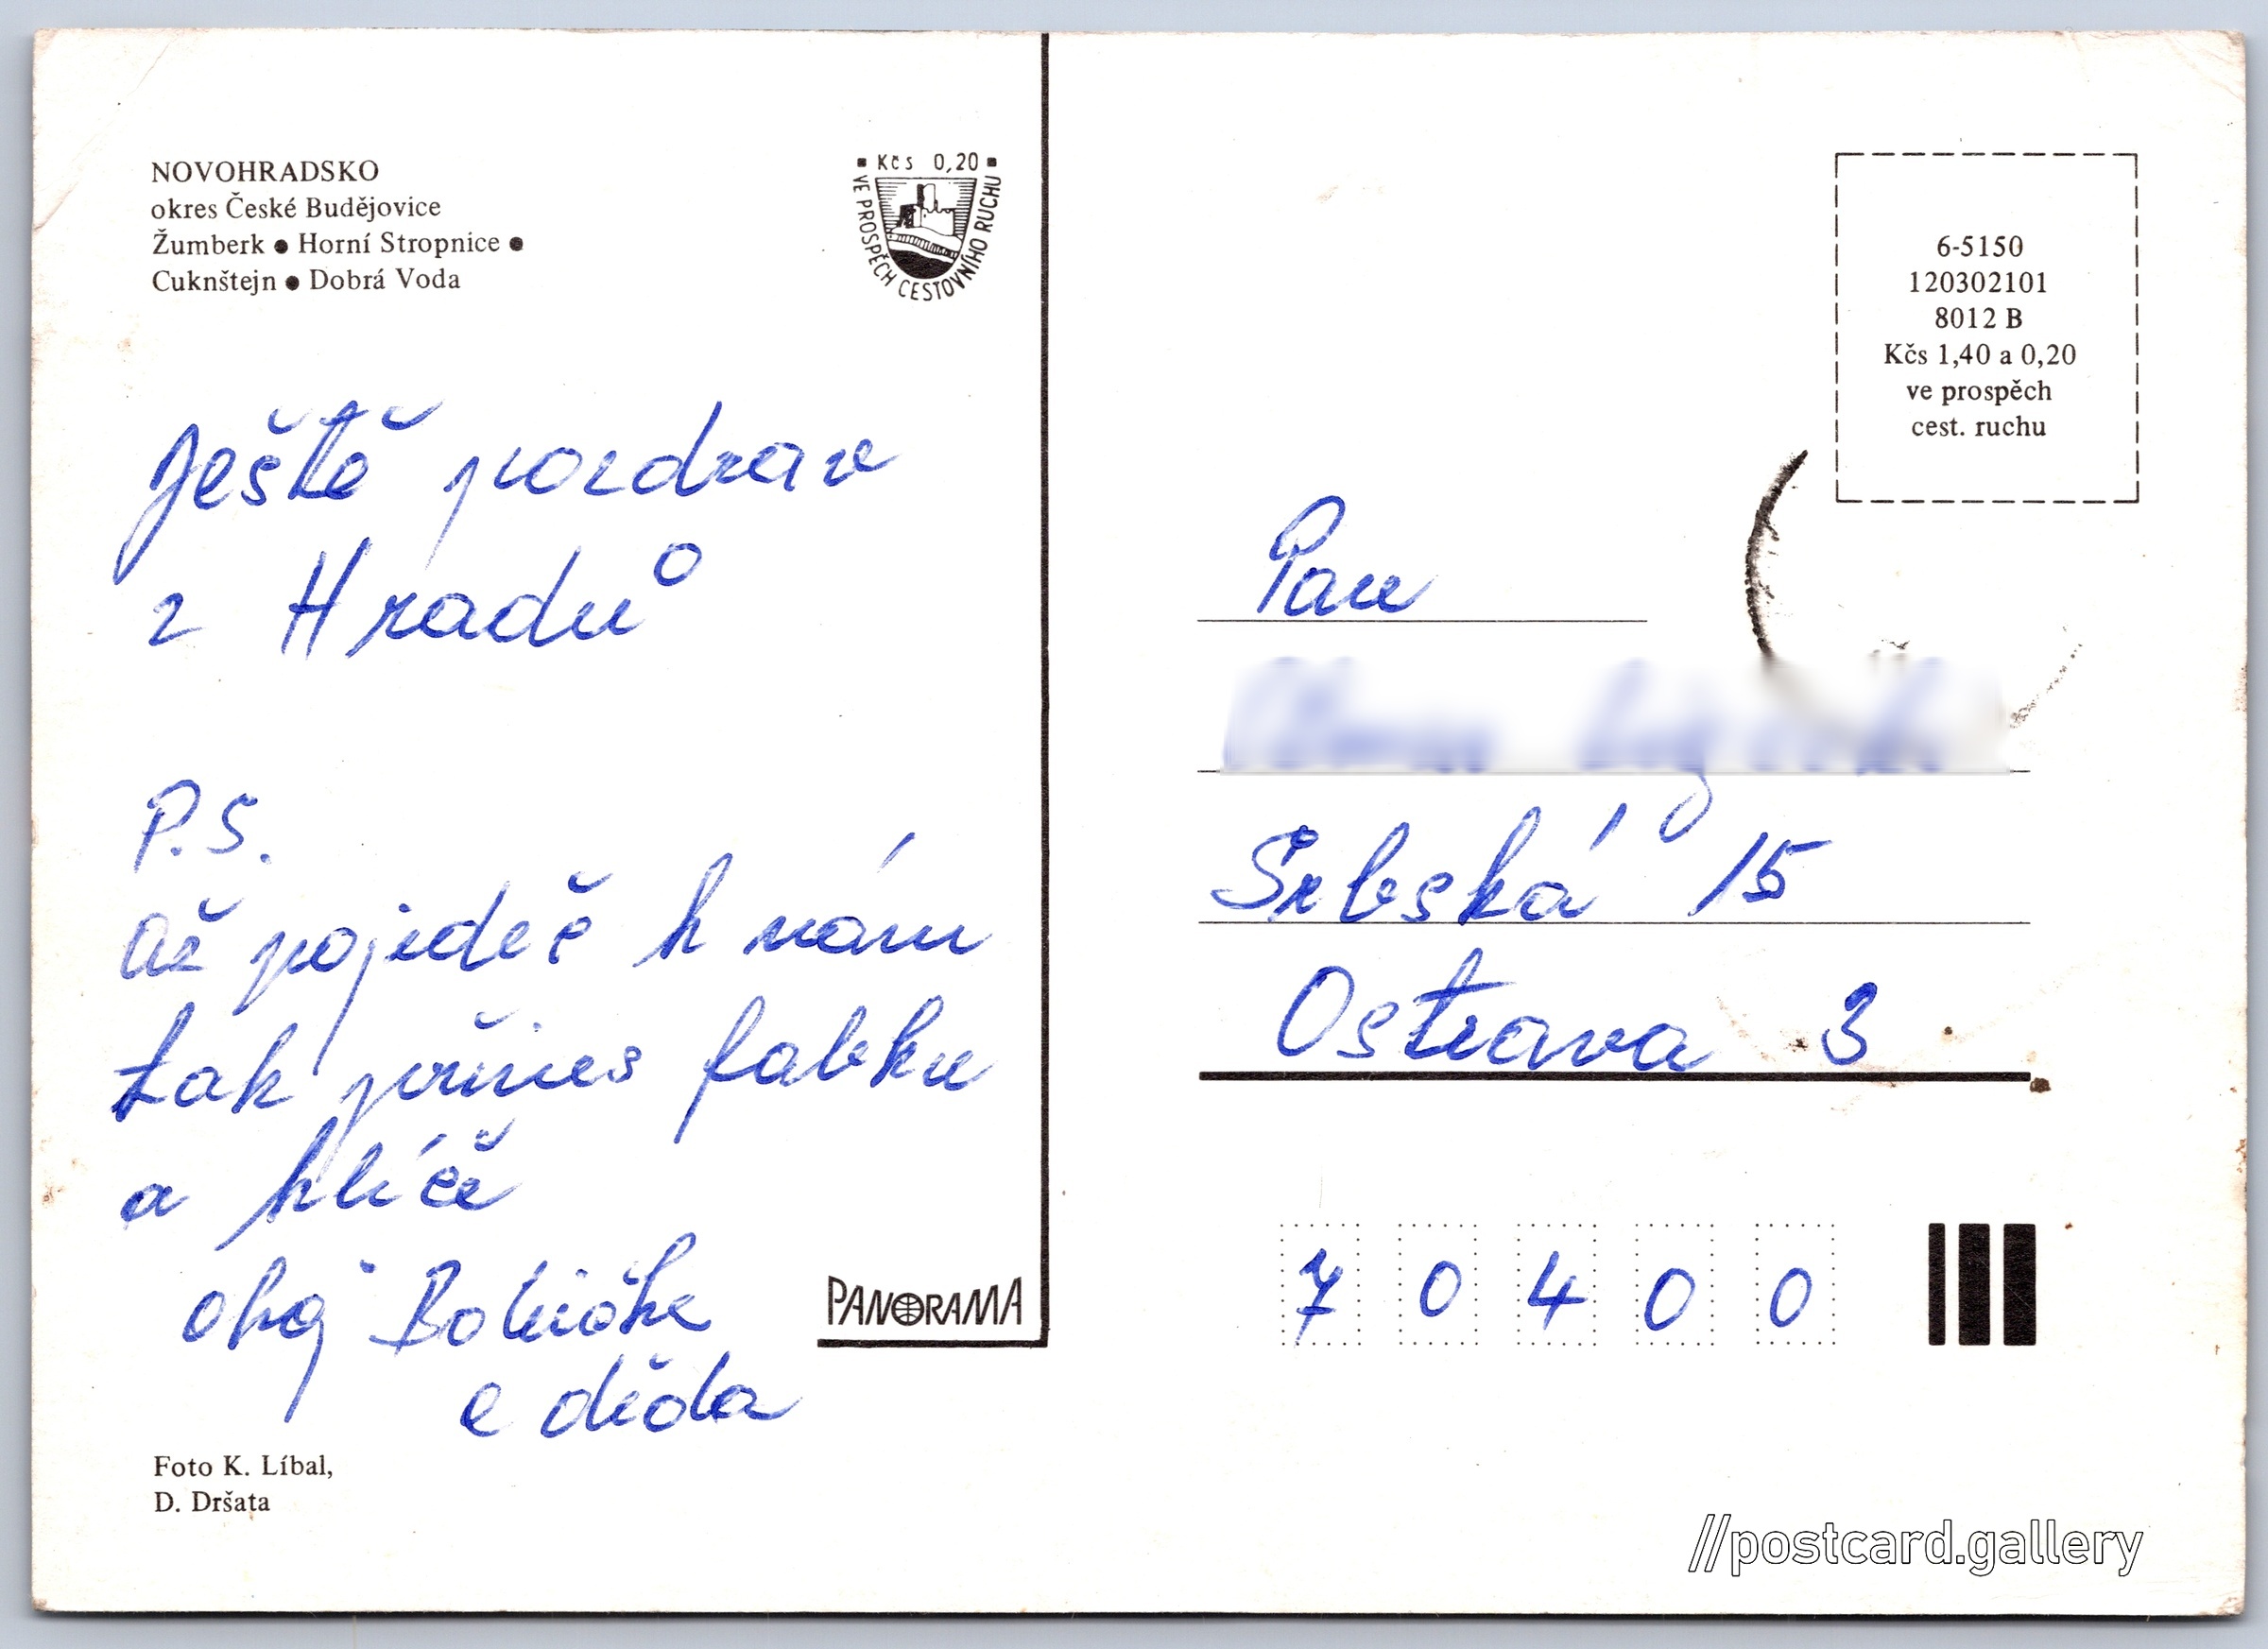 NOVOHRADSKO
okres České Budějovice
Žumberk ● Horní Stropnice ●
Cuknštejn ● Dobrá Voda
Kčs 0,20
VE PROSPĚCH CESTOVNÍHO RUCHU
Ještě pozdrav
z Hradů
P.S.
až pojedeš k nám
tak přines fabku
a klíče
ahoj
a děda
PANORAMA
Foto K. Líbal,
D. Dršata
6-5150
120302101
8012 B
Kčs 1,40 a 0,20
ve prospěch
cest. ruchu
Pan
Srbská 15
Ostrava 3
7 0 4 0 0
//postcard.gallery